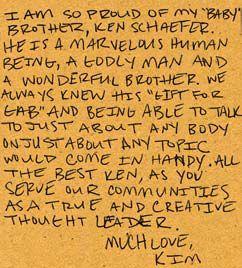 I AM SO PROUD OF MY "BABY"
BROTHER, KEN SCHAEFER.
HE IS A MARVELOUS HUMAN
BEING, A GODLY MAN AND
A WONDERFUL BROTHER. WE
ALWAYS KNEW HIS "GIFT FOR
GAB" AND BEING ABLE TO TALK
TO JUST ABOUT ANY BODY
ON JUST ABOUT ANY TOPIC
WOULD COME IN HANDY. ALL
THE BEST KEN, AS YOU
SERVE OUR COMMUNITIES
AS A TRUE AND CREATIVE
THOUGHT LEADER.
MUCH LOVE,
KIM